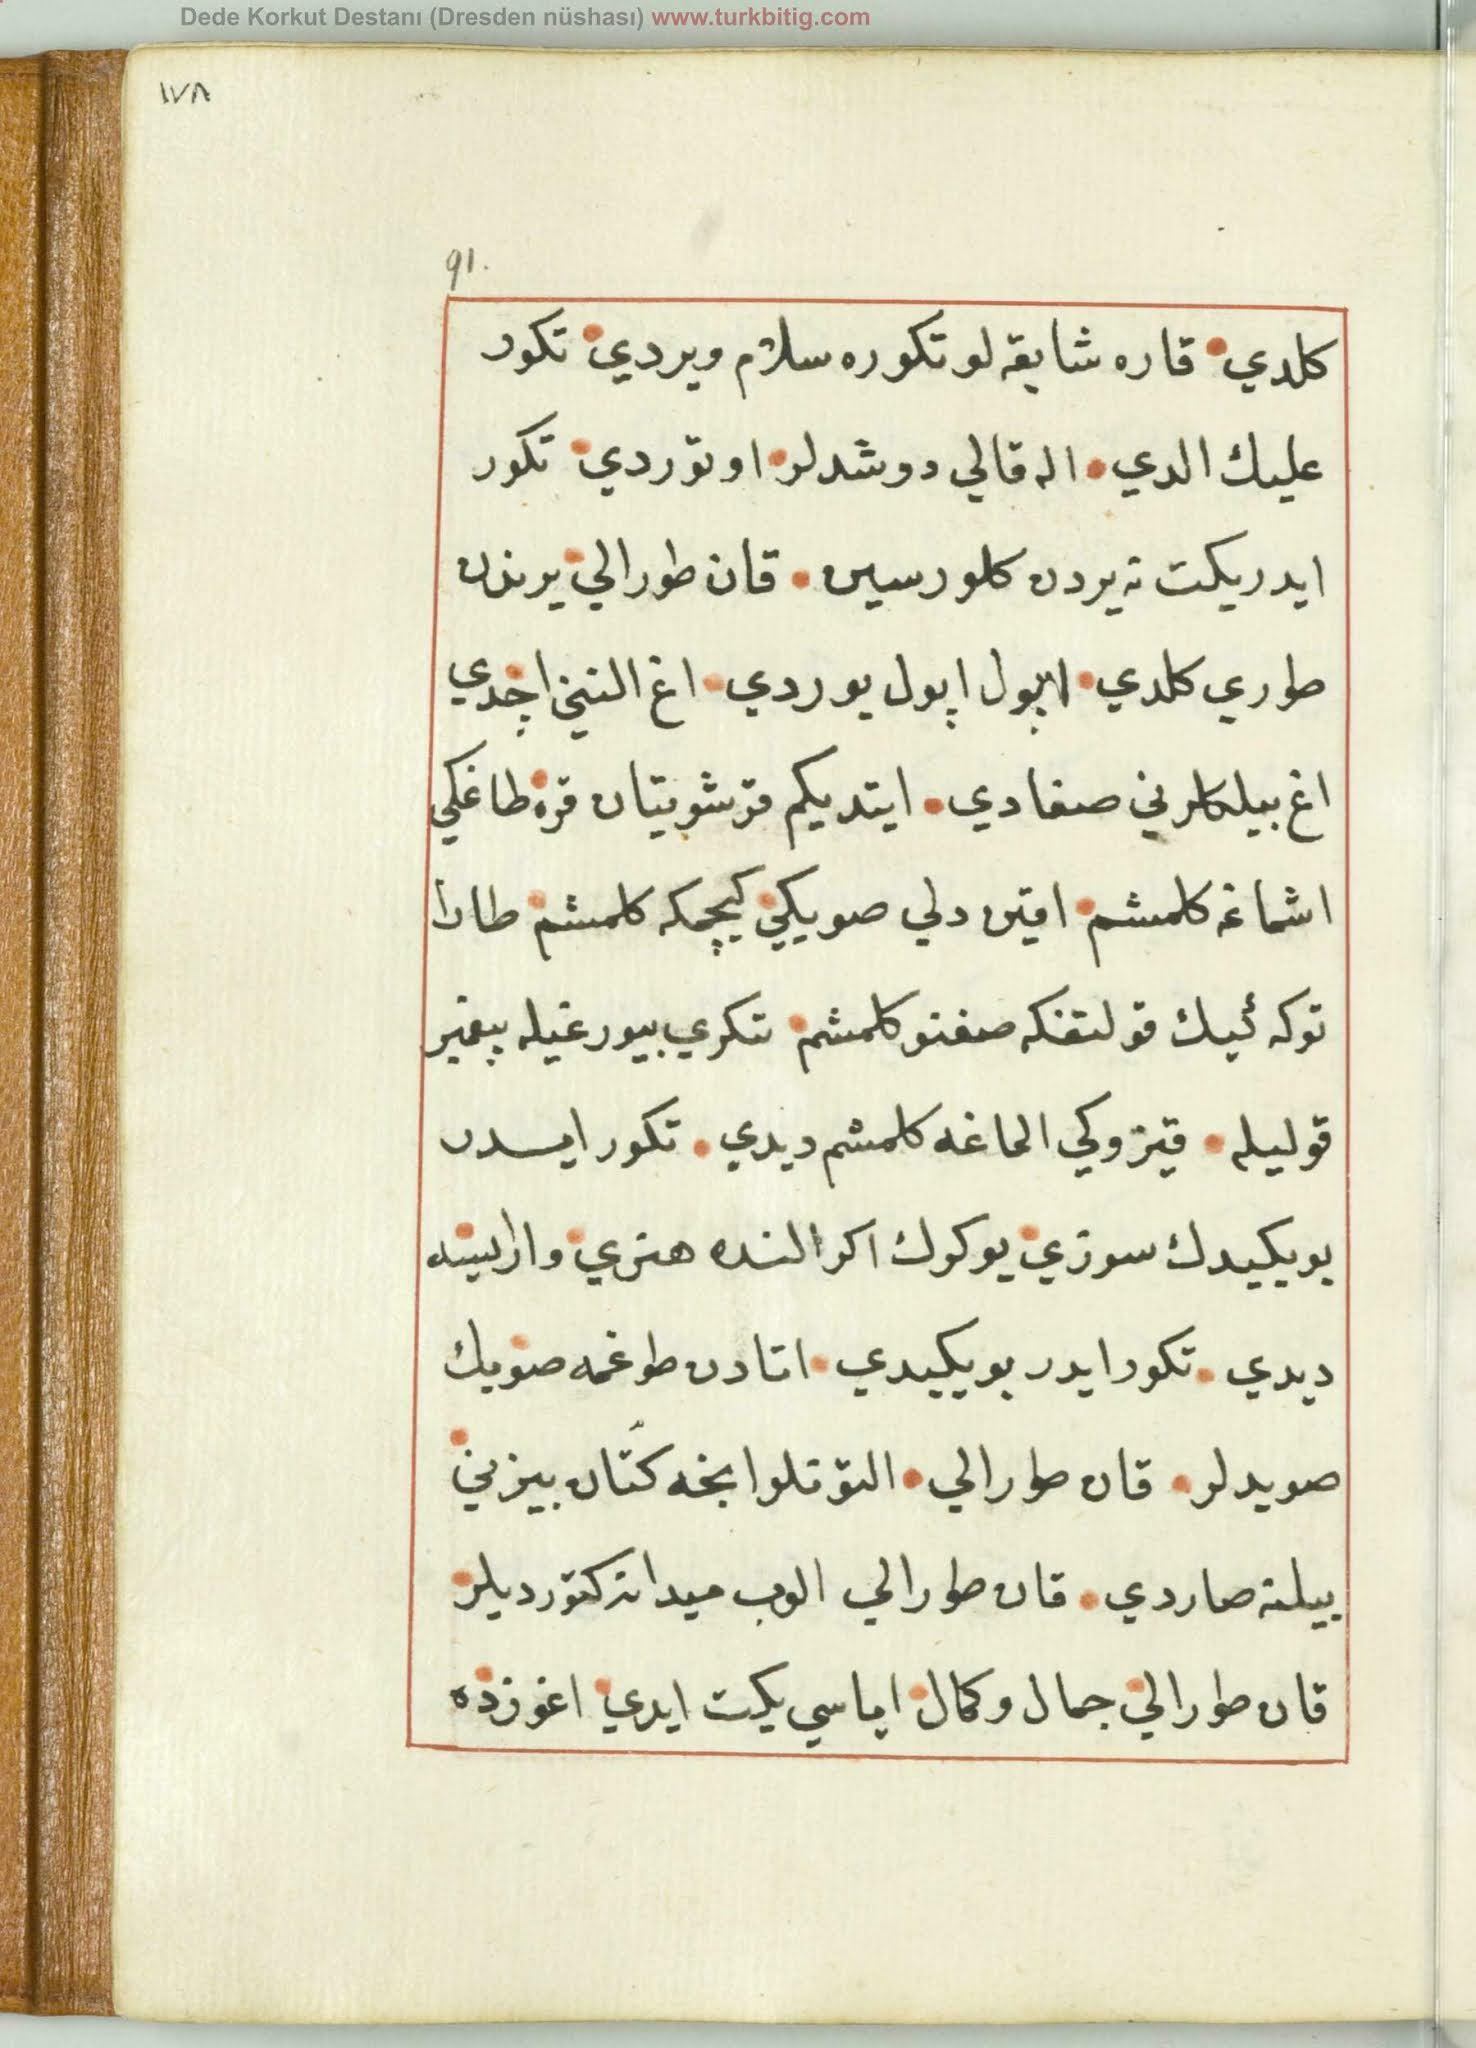 Dede Korkut Destanı (Dresden nüshası) www.turkbitig.com
١٧٨
91.
كلدي قاره شابقه لو تكوره سلام ويردي تكور
عليك الدي اله قالي دوشدلر اوتوردي تكور
ايدر يكت نه يردن كلورسين قان طورالي يرندن
طوري كلدي اپول اپول يوردي اغ النني اچدي
اغ بيلكلرني صغادي ايتديكم قرشو يتان قره طاغكي
اشماغه كلمشم اقين دلي صويكي كيچمكه كلمشم طار
توكه ئيك قولتقنكه صغنو كلمشم تنكري بيورغيله پيغمبر
قوليله قيزوكي الماغه كلمشم ديدي تكور ايدر
بو يكيدك سوزي يوكوك اكر النده هنري وارايسه
ديدي تكور ايدر بو يكيدي اتادن طوغمه صويك
صويدلر قان طورالي التونلو اينجه كتان بيزيني
بيلنه صاردي قان طورالي الوب ميدانه كتورديلر
قان طورالي جمال وكمال اياسي يكت ايدي اغوزده